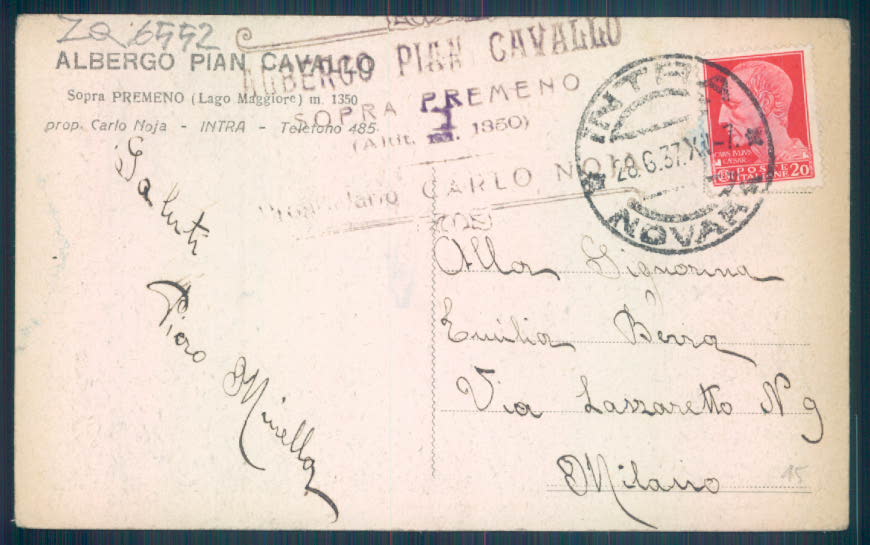 ZQ 6552
ALBERGO PIAN CAVALLO
Sopra PREMENO (Lago Maggiore) m. 1350
prop. Carlo Noja - INTRA - Telefono 485
ALBERGO PIAN CAVALLO
SOPRA PREMENO
(Altit. m. 1350)
Proprietario CARLO NOJA
INTRA
28.6.37.XV-7
NOVARA
CAIVS IVLIVS
CAESAR
POSTE
ITALIANE 20
Saluti
Piero Minella
Alla Signorina
Emilia Berra
Via Lazzaretto N 9
Milano
15